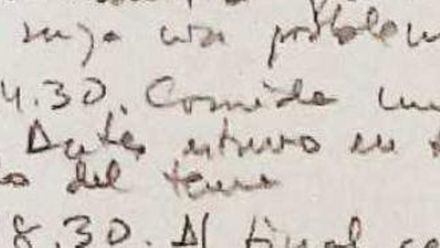 surja un problem
4.30. Comida un
Antes estuvo en
o del tema
8.30. Al final co